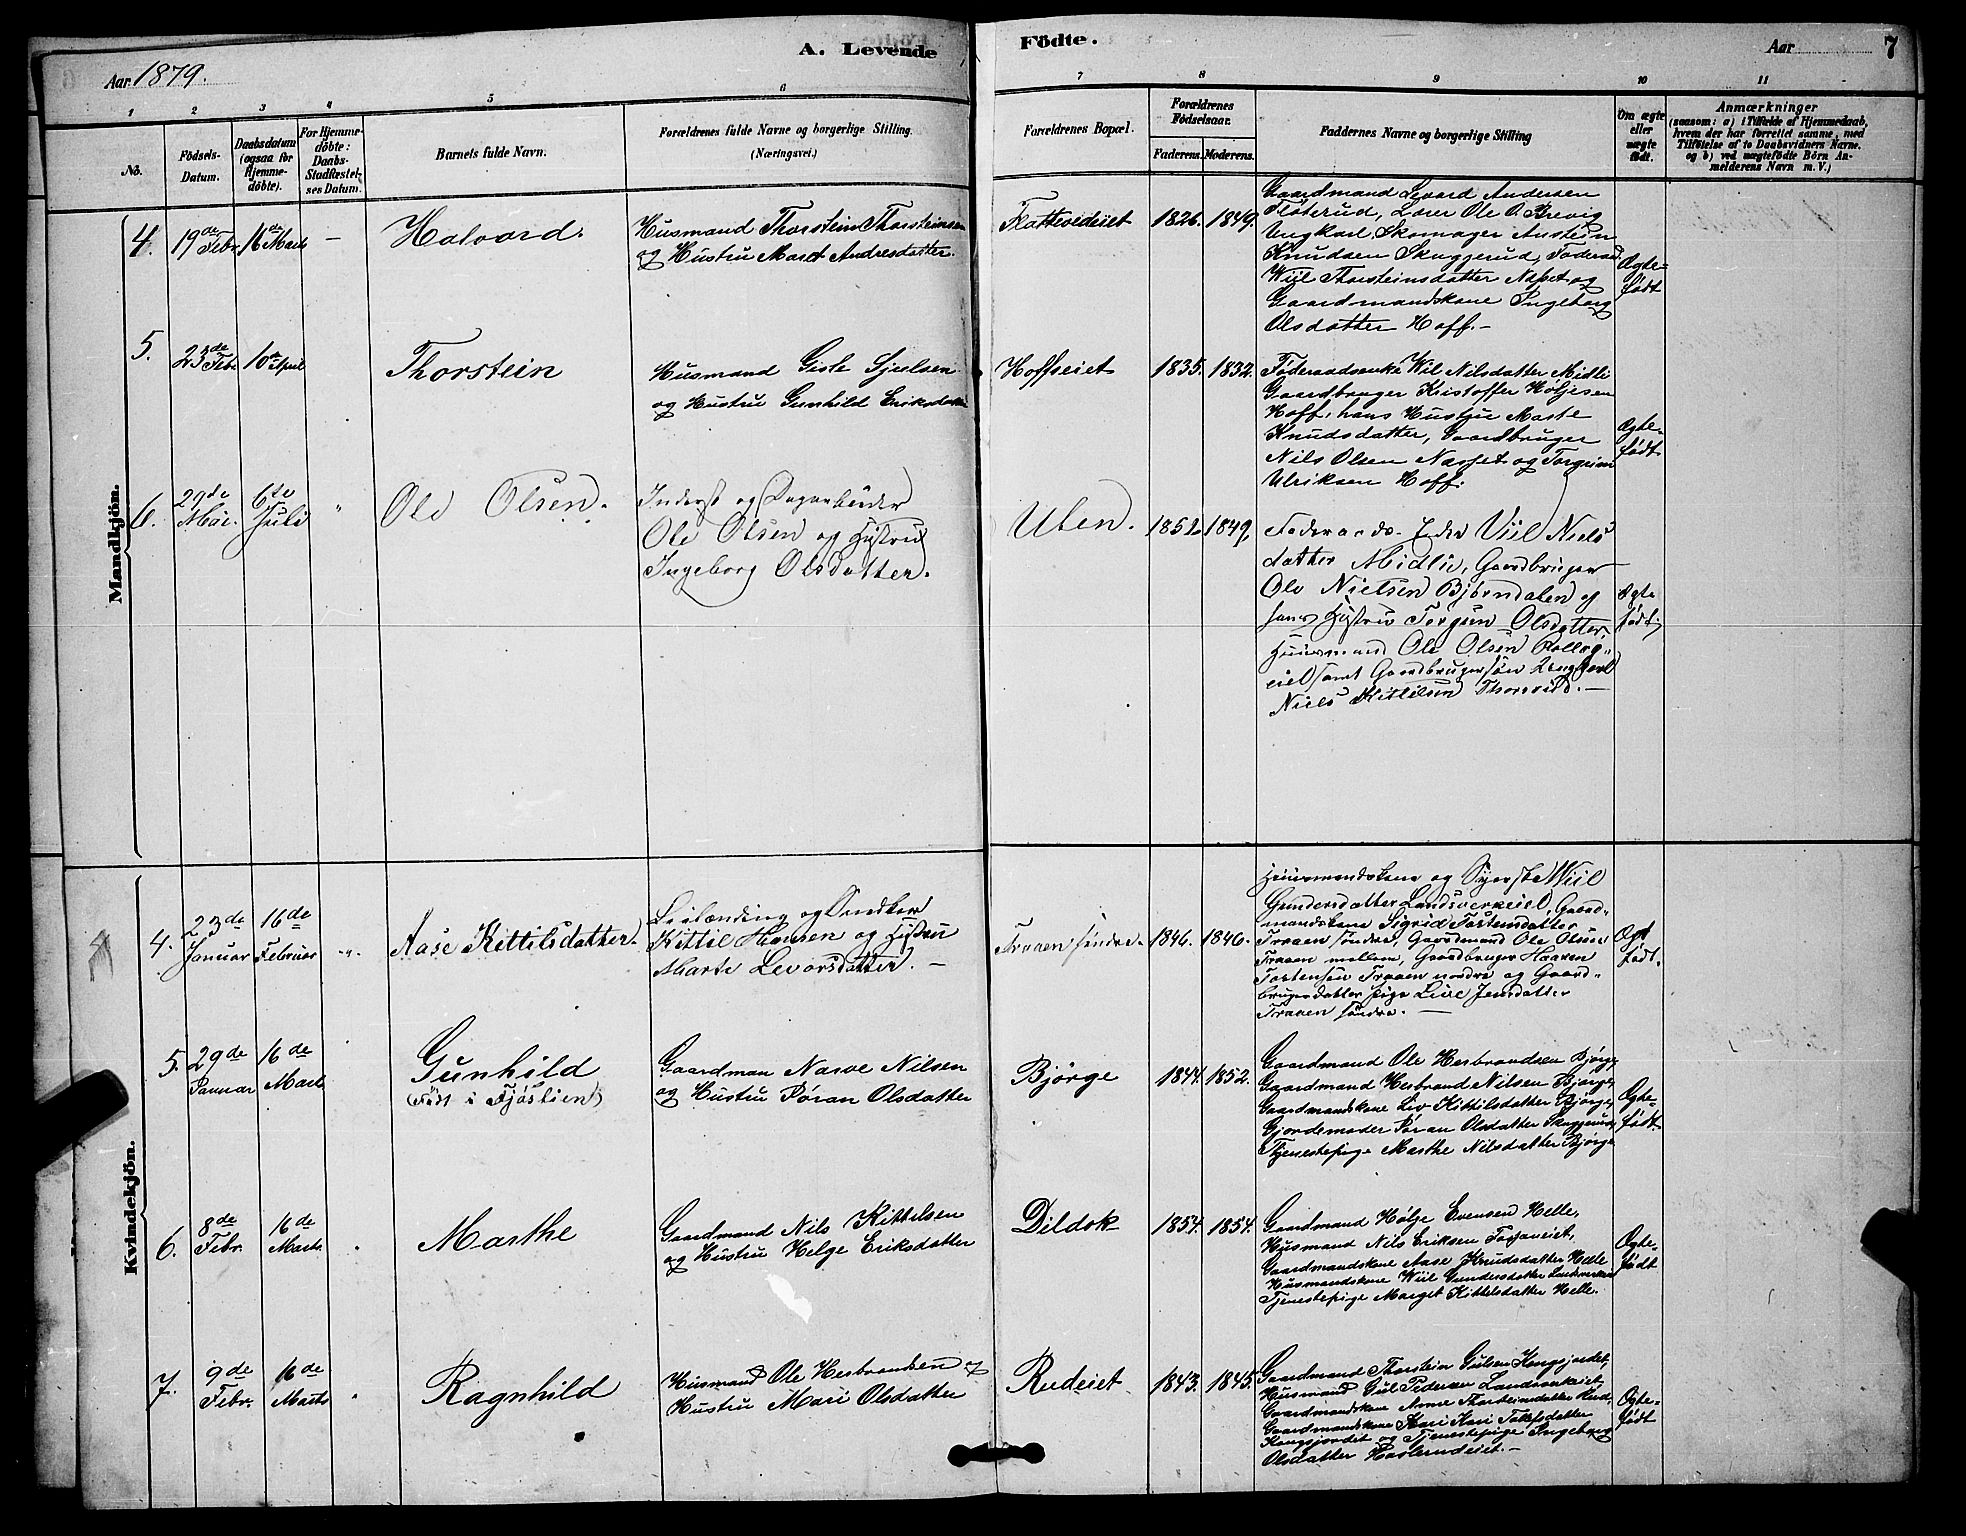 A. Levende
Födte.
Aar 1879.
Aar
7
1
2
3
4
5
6
7
8
9
10
11
No.
Födsels-
Datum.
Daabsdatum
(ogsaa for
Hjemme-
döbte).
For Hjemme-
döbte:
Daabs-
Stadfæstel-
ses Datum.
Barnets fulde Navn.
Forældrenes fulde Navne og borgerlige Stilling.
(Næringsvei.)
Forældrenes Bopæl.
Forældrenes
Födselsaar.
Faderens.
Moderens.
Faddernes Navne og borgerlige Stilling
Om ægte
eller
uægte
født.
Anmærkninger
(saasom: a) i Tilfælde af Hjemmedaab,
hvem der har forrettet samme, med
Tilföielse af to Daabsvidners Navne.
og b) ved uægtefödte Börn An-
melderens Navn m. V.)
Mandkjön.
4.
19de Febr
16de Marts
Halvord.
Husmand Thorstein Thorsteinsen
og Hustru Marit Andresdatter.
1826.
1849.
Gaardmand Levord Andersen
Fløterud, Lærer Ole O. Brevig
Ungkarl, Skomager Anstein
Knudsen Skuggerud, Føderaad
Wiil Thorsteinsdatter Næset og
Gaardmandskone Ingeborg
Olsdatter Hoff.-
Ægte-
født
5.
23de Febr
10de April
Thorstein
Husmand Gisle Gjulsen
og Hustru Gunhild Eriksdatter
Hoffseiet
1835.
1832.
Føderaadsenke Wil Nilsdatter Midli
Gaardbruger Kristoffer Høljesen
Hoff, hans Hustru Marte
Knudsdatter, Gaardbruger
Nils Olsen Næsset og Torgrim
Ulriksen Hoff.
Ægte-
født
6.
29de
Mai.
6te
Juli
"
Ole Olsen.
Inderst og Dagarbeider
Ole Olsen og Hustru
Ingeborg Olsdatter.
Uten.
1851.
1849
Føderaads- Viil Niels
datter Midlie, Gaardbruger
Ole Nielsen Bjørndalen og
hans Hustru Torgun Olsdatter,
Husmand Ole Olsen
eiet samt Gaardbrugersøn Ungkarl
Niels Kittilsen Thorsrud.-
Ægte
født
Kvindekjön.
4.
23de
Januar
16de
Februar
"
Aase Kittilsdatter.
Leilænding og Snedker
Kittil Hansen og Hustru
Marte Levorsdatter. -
Traaen søndre.
1846.
1846.
Huusmandskone og Syerske Wiil
Gundersdatter Landsverkeiet, Gaard-
mandskone Sigrid Tostensdatter
Traaen søndre, Gaardmand Ole Olsen
Traaen mellem, Gaardbruger Haaven
Tostensøn Traaen nordre og Gaard-
brugerdatter pige Live Jensdatter
Traaen søndre. -
Ægt
født.
5.
29de
Januar
16de
Marts
Gunhild
(Født i Fjøslien)
Gaardman Narve Nilsen
og Hustru Jøran Olsdatter
Bjørge
1844.
1852.
Gaardmand Ole Herbrandsen Bjørge,
Gaardmand Herbrand Nilsen Bjørge,
Gaardmandskone Liv Kittilsdatter Bjørge,
Gjordemoder Jøran Olsdatter Skuggerud,
Tjenestepige Marthe Nilsdatter Bjørge
Ægte-
født
6.
8de
Febr.
16de
Marts.
Marthe
Gaardmand Nils Kittilsen
og Hustru Helge Eriksdatter
Dildok
1854.
1854.
Gaardmand Hølje Evensen Helle,
Husmand Nils Eriksen
Gaardmandskone Aase Knudsdatter Helle
Husmandskone Wiil Gundersdatter
Tjenestepige Marget Kittilsdatter Helle.
Ægte-
født
7.
9de
Febr.
16de
Marts
Ragnhild
Husmand Ole Herbrandsen og
Hustru Mari Olsdatter
Rudeiet
1843.
1845.
Gaardmand Thorstein Gulsen Kongsjordet,
Husmand Gul Pedersen Landsverkeiet,
Gaardmandskone Anne Thorsteinsdatter Rud,
Gaardmandskone Kari
Kongsjordet og Tjenestepige Ingeborg
Olsdatter Haslerudeiet.-
Ægte-
født